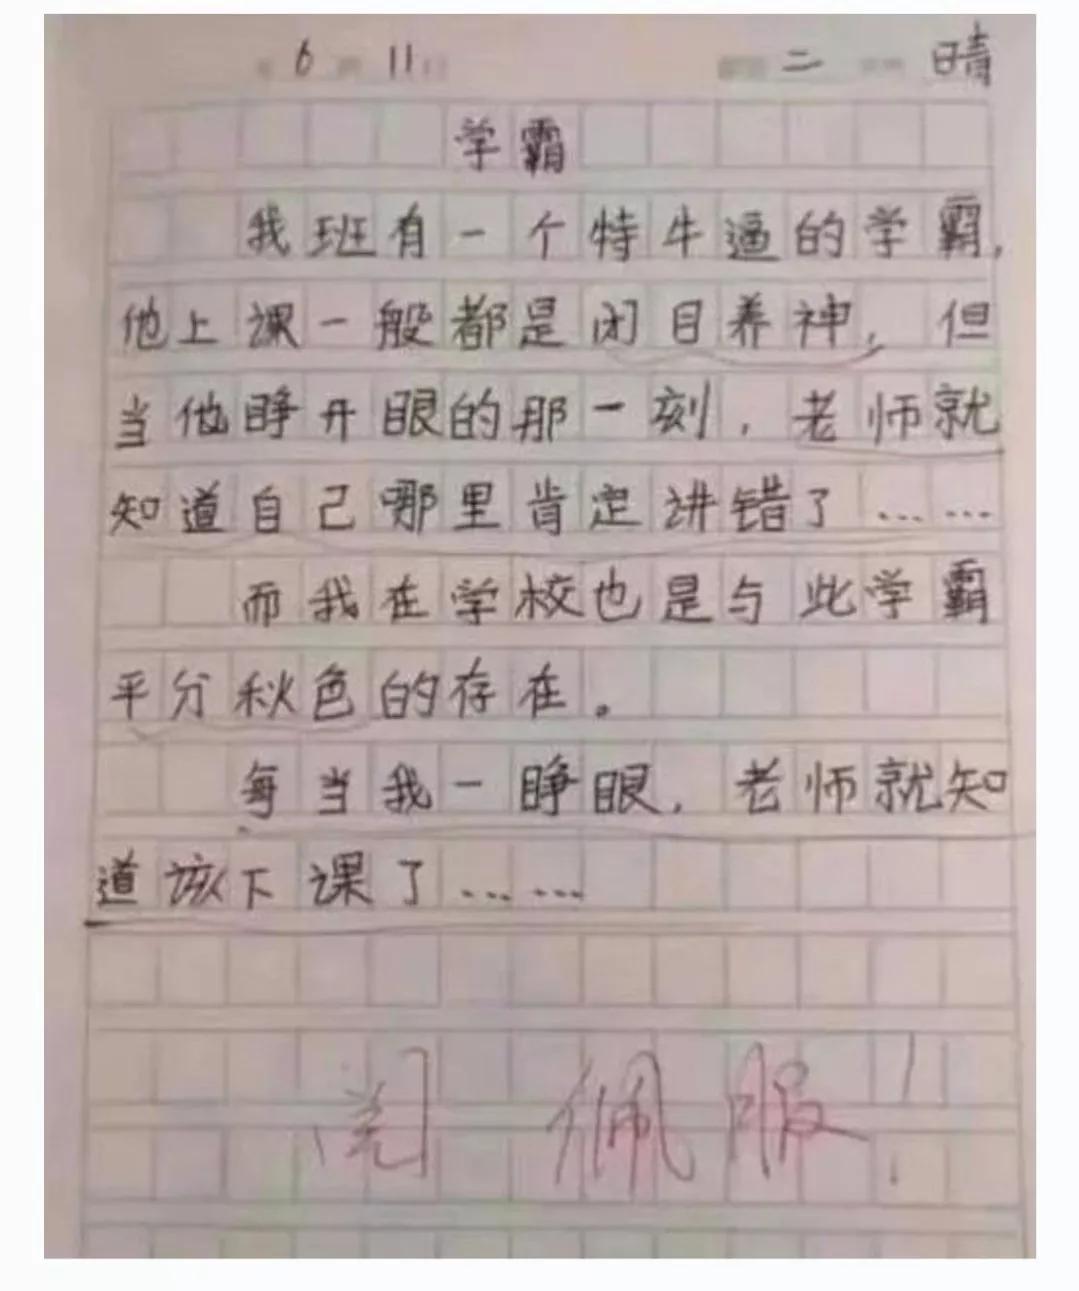 6 11 二 晴
学霸
我班有一个特牛逼的学霸,
他上课一般都是闭目养神,但
当他睁开眼的那一刻,老师就
知道自己哪里肯定讲错了……
而我在学校也是与此学霸
平分秋色的存在。
每当我一睁眼,老师就知
道该下课了……
阅 佩服!